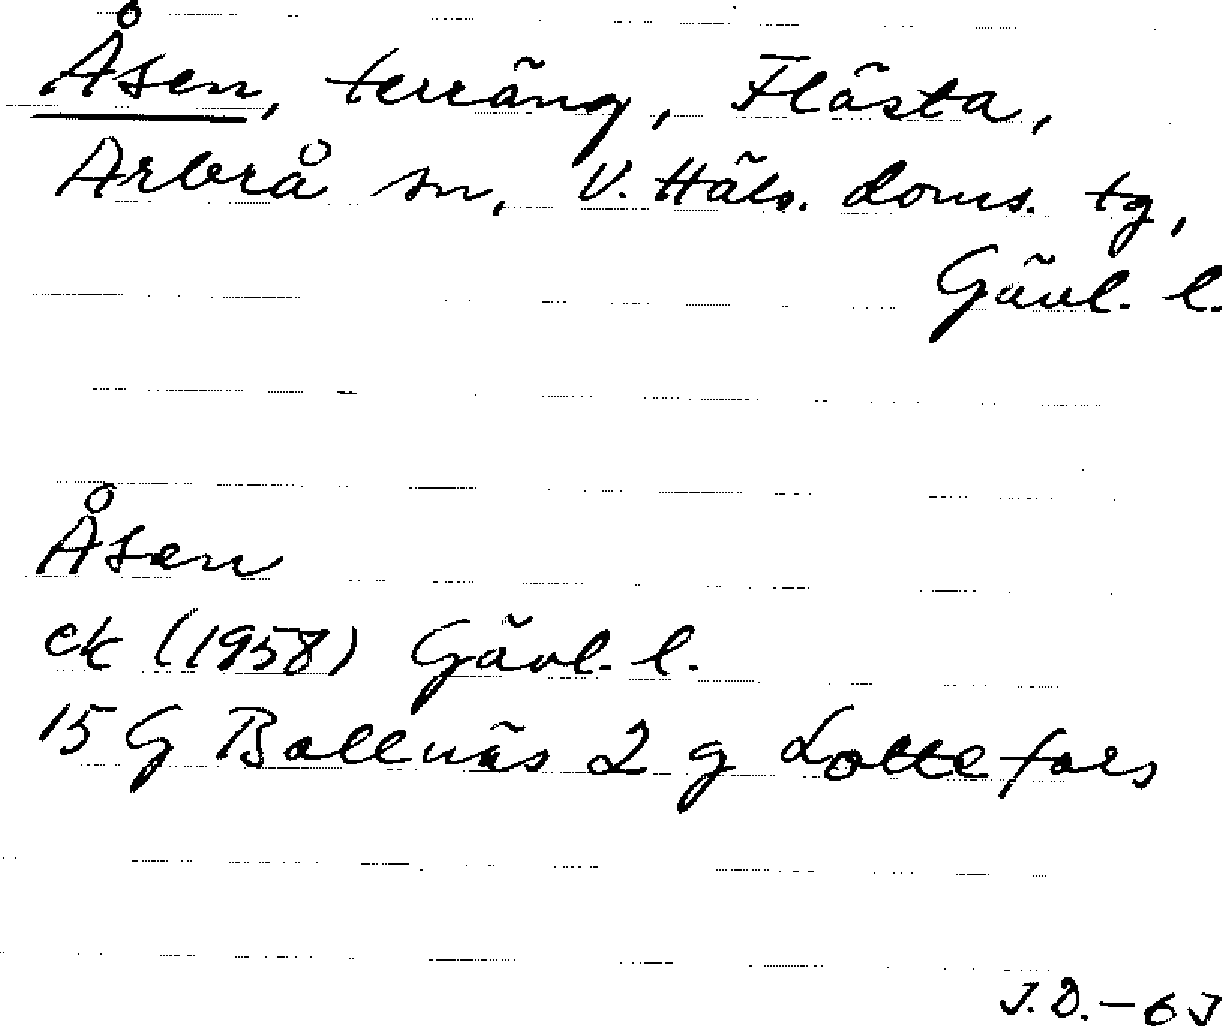 Åsen, terräng, Flästa,
Arbrå sn, V. Häls. doms. tg,
Gävl. l.
Åsen
ek (1958) Gävl. l.
15 G Bollnäs 2 g Lottefors
J.D. - 63